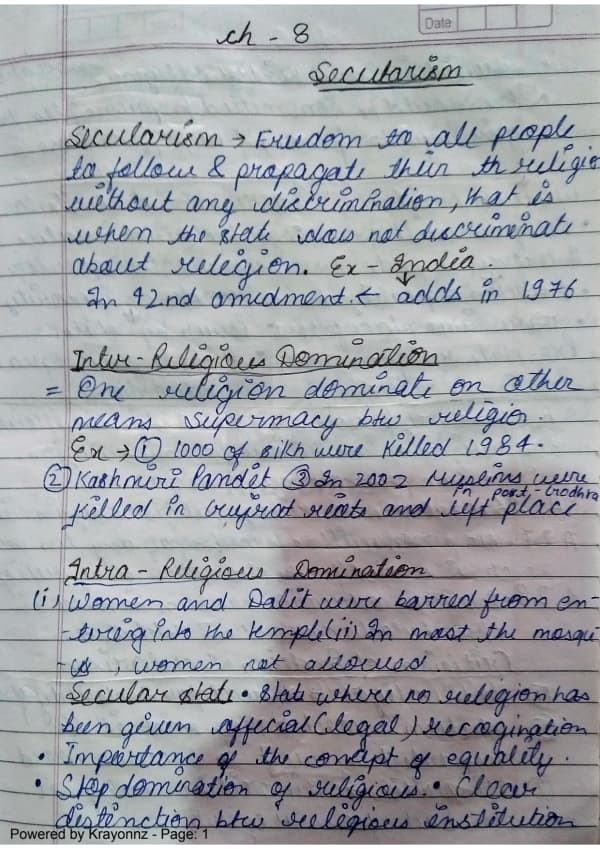 Date
ch - 8
Secularism
Secularism → Freedom to all people
to follow & propagate their th religio
without any discrimination, that is
when the state does not discriminate
about religion. Ex - India.
In 42nd amidment. ← adds in 1976
Inter - Religious Domination
= One religion dominate on other
means supermacy btw religion.
Ex → ① 1000 of sikh were killed 1984.
② Kashmiri Pandit ③ In 2002 Muslims were
in post - Godhra
killed in Gujrat riots and left place
Intra - Religious Domination
(i) Women and Dalit were barred from en-
-tering into the temple (ii) In most the mosqu
-es, women not allowed.
Secular state • State where no religion has
been given official (legal) recogination
• Importance of the concept of equality.
• Stop domination of religious. • Clear
distinction btw religious institution
Powered by Krayonnz - Page: 1